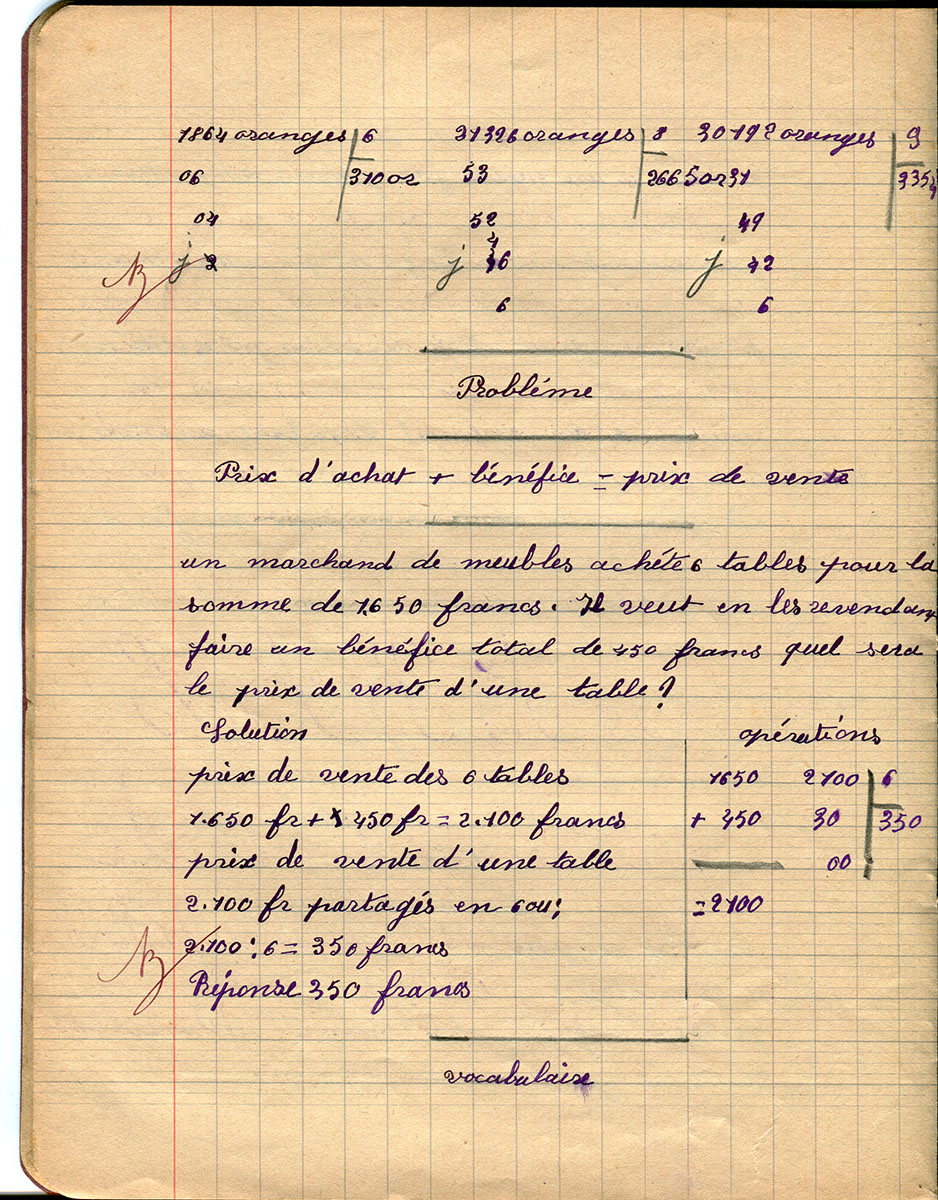 1864 oranges 6 21326 oranges 8 30192 oranges 9
06 310 or 53 2665 or 31 3354
04 52 49
j 2 j 46 j 42
B
6 6
Probléme
Prix d'achat + bénéfice = prix de vente
un marchand de meubles achéte 6 tables pour la
somme de 1.650 francs. Il veut en les revendant
faire un bénéfice total de 450 francs quel sera
le prix de vente d'une table?
Solution opérations
prix de vente des 6 tables 1650 2100 6
1.650 fr + 450 fr = 2.100 francs + 450 30 350
prix de vente d'une table 00
2.100 fr partagés en 6 ou: =2100
B 2.100 : 6 = 350 francs
Réponse 350 francs
vocabulaire